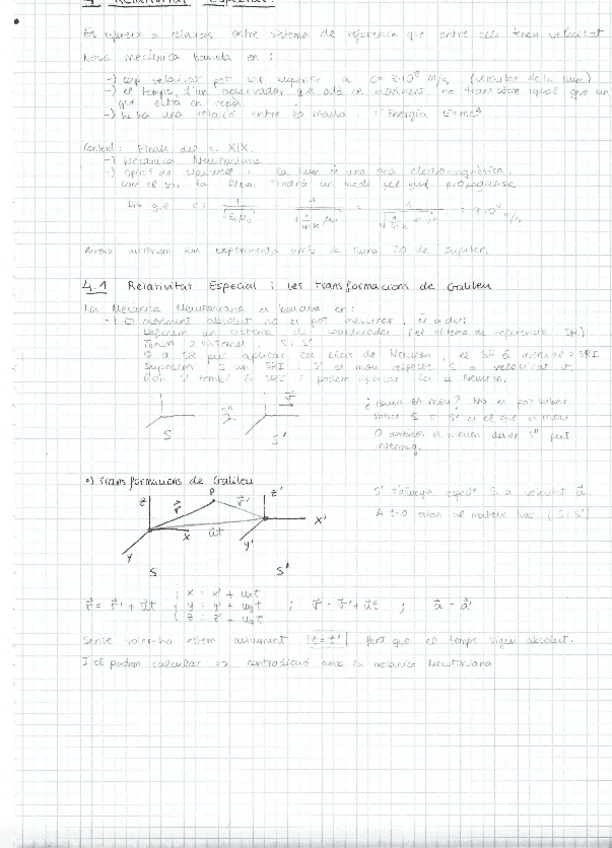 4 Relativitat Especial.
Es refereix a relacions entre sistemes de referència que entre ells tenen velocitat
Nova mecànica basada en:
-) cap velocitat pot ser superior a c = 3·10⁸ m/s (velocitat de la llum)
-) el temps d'un observador que està en moviment no transcorre igual que un
que està en repòs
-) hi ha una relació entre la massa i l'Energia E=mc²
Context: Finals del s. XIX.
-) Mecànica Newtoniana
la llum és una ona electromagnètica.
com el so, la llum tindrà un medi pel qual propagar-se
experiments amb la lluna IO de Jupiter.
4.1 Relativitat Especial i les transformacions de Galileu
La Mecànica Newtoniana es basava en:
-) El moviment absolut no es pot mesurar, és a dir:
Definim un sistema de coordenades (el sistema de referència SR)
Tenim 2 sistemes, S i S'
Si a SR puc aplicar les lleis de Newton, el SR és inercial = SRI
Suposem S un SRI i S' es mou respecte S a velocitat v.
S' també és SRI i podem aplicar Newton.
v
S S'
¿ es mou? No es pot saber
S o S' és el que es mou
O ambdós es mouen des de S''
·) Transformacions de Galileu
z P z'
r r'
x ut x'
y y'
S S'
S' respecte S a velocitat u.
A t=0 estan al mateix lloc (S i S')
r = r' + ut { x = x' + uₓt
y = y' + u_y t
z = z' + u_z t ; ; a = a'
Sense voler-ho estem assumint t = t' fent que el temps sigui absolut.
I el podem calcular => contradicció amb la mecànica Newtoniana